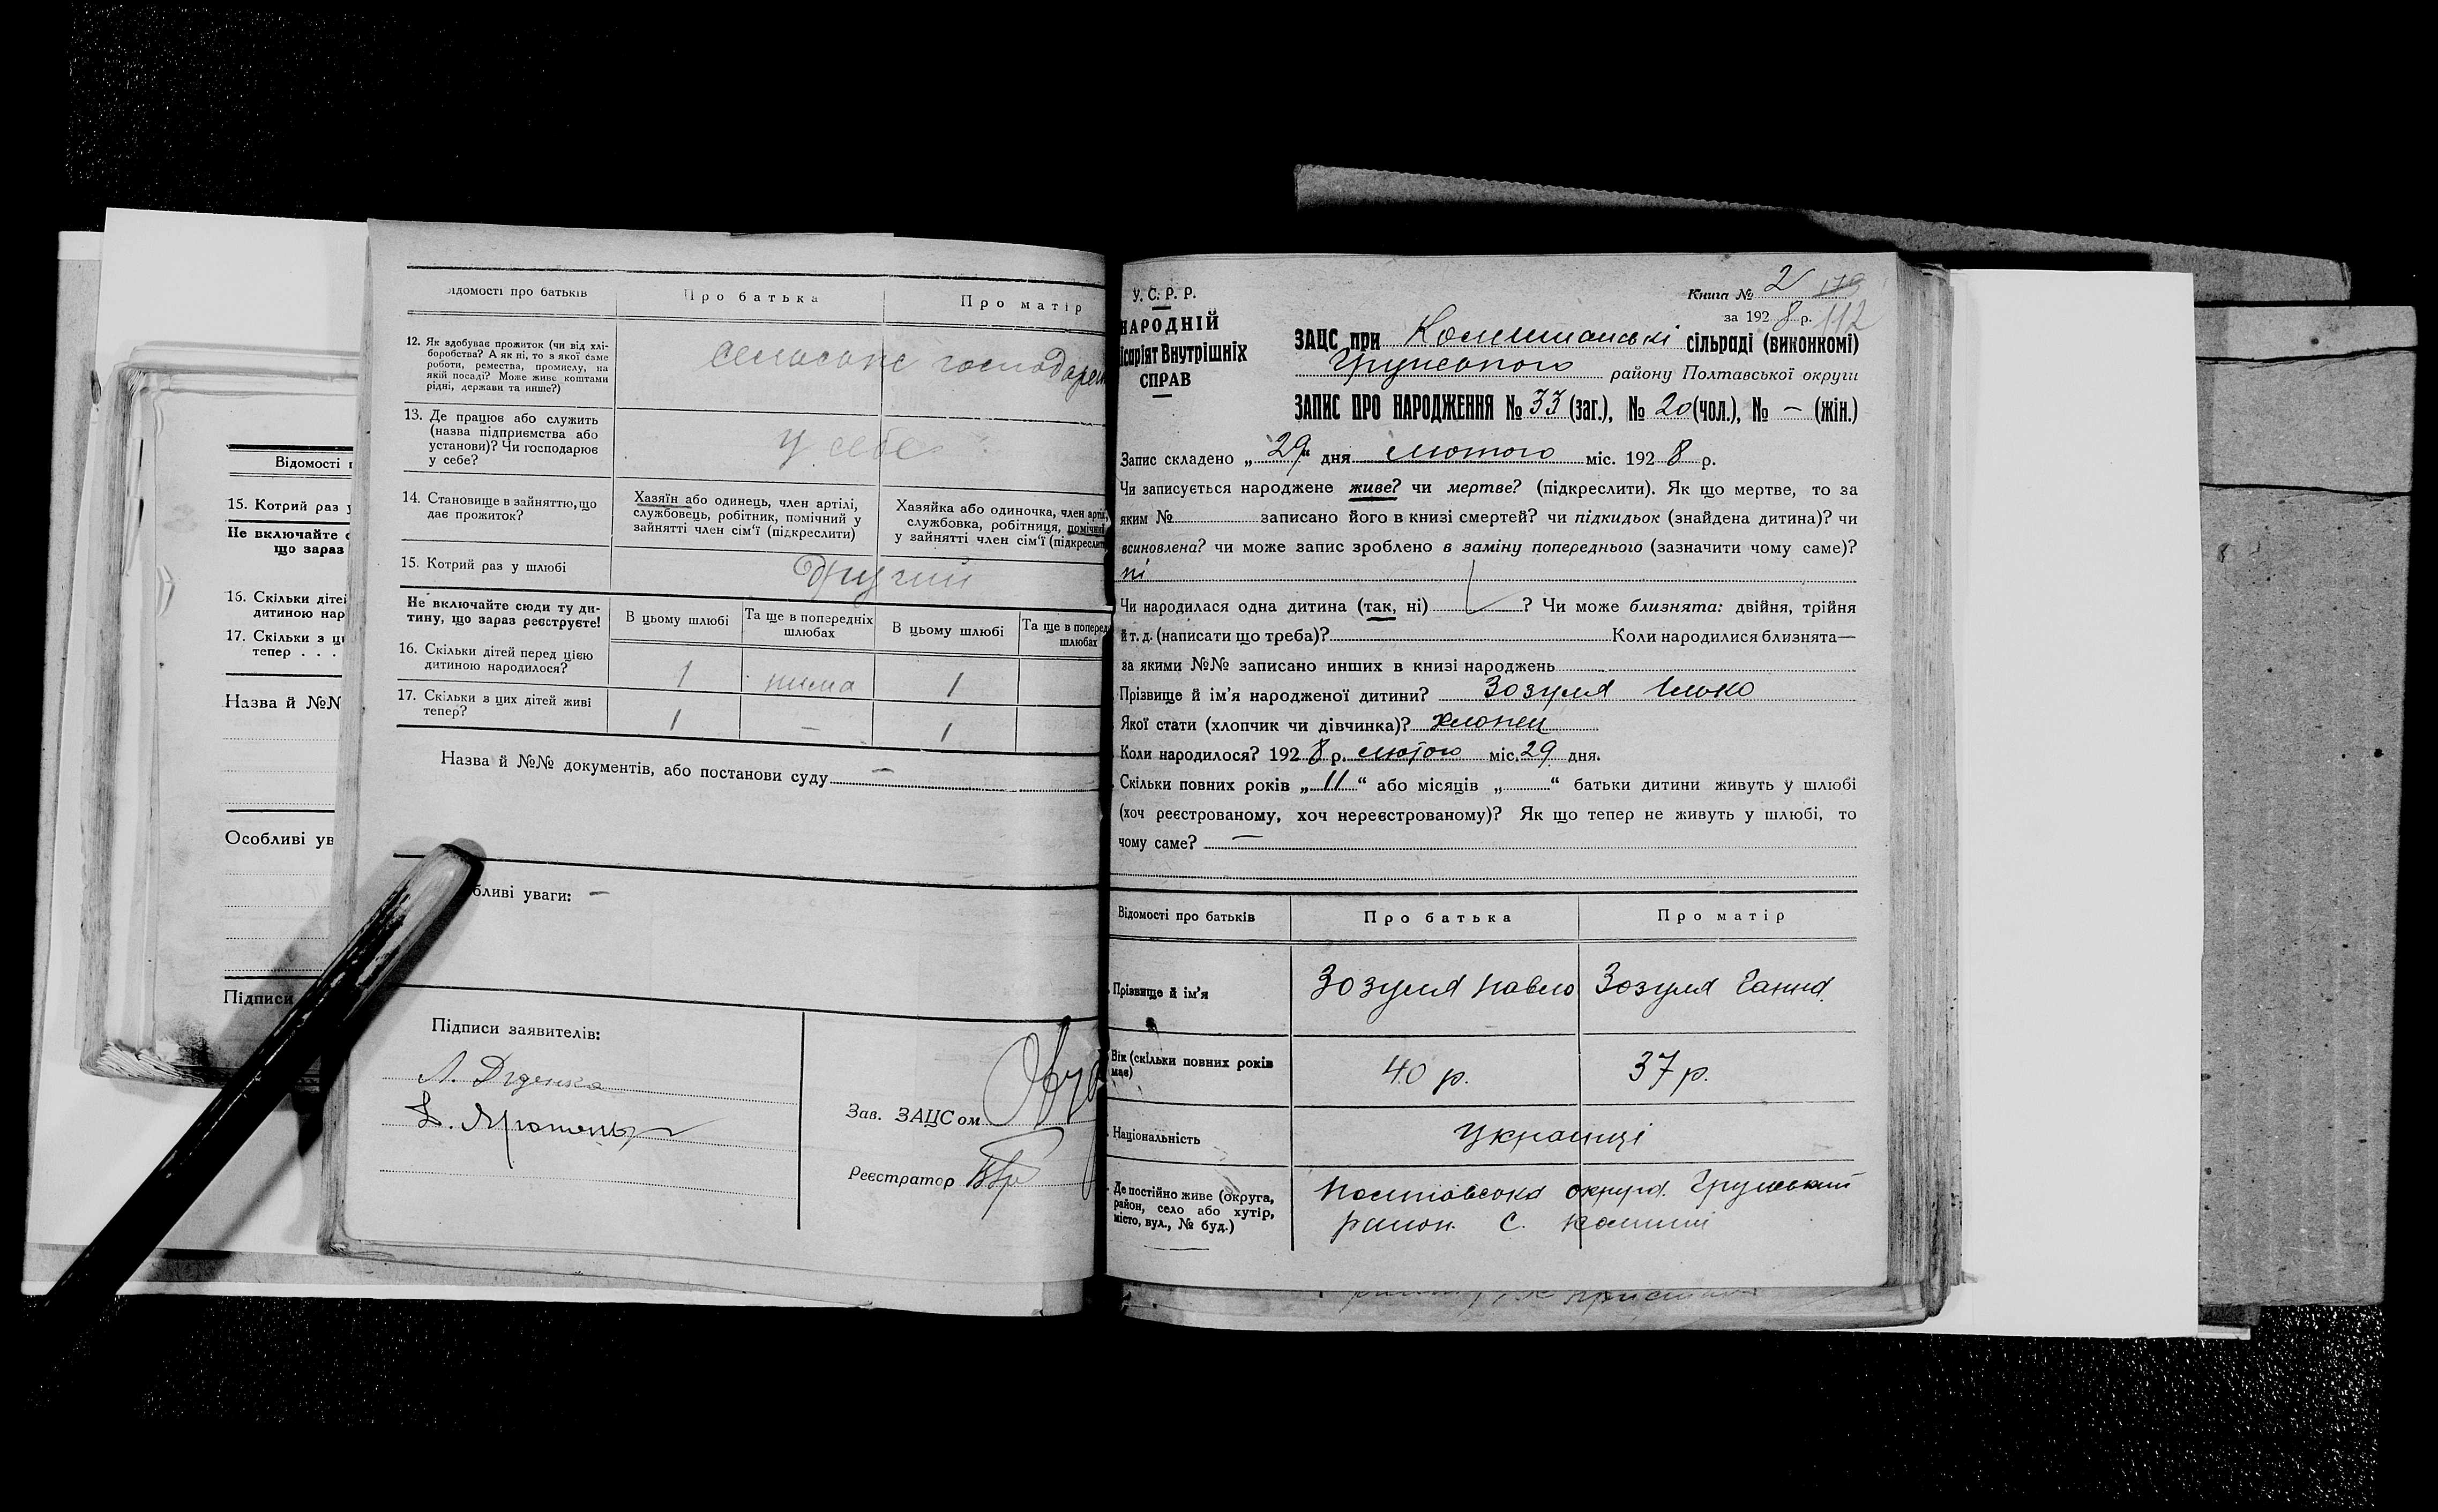 Відомості п
15. Котрий раз у
Не включайте с
що зараз
16. Скільки дітей
дитиною нар
17. Скільки з ци
тепер . . .
Назва й №№
Особливі ув
Підписи
ідомості про батьків
Про батька
Про матір
12. Як здобуває прожиток (чи від хлі-
боробства? А як ні, то з якої саме
роботи, ремества, промислу, на
якій посаді? Може живе коштами
рідні, держави та инше?)
сельське господарств
13. Де працює або служить
(назва підприємства або
установи)? Чи господарює
у себе?
У себе
14. Становище в зайняттю, що
дає прожиток?
Хазяїн або одинець, член артілі,
службовець, робітник, помічний у
зайнятті член сім'ї (підкреслити)
Хазяйка або одиночка, член артілі,
службовка, робітниця, помічний
у зайнятті член сім'ї (підкреслити
15. Котрий раз у шлюбі
Другий
Не включайте сюди ту ди-
тину, що зараз реєструєте!
В цьому шлюбі
Та ще в попередніх
шлюбах
В цьому шлюбі
Та ще в поперед
шлюбах
16. Скільки дітей перед цією
дитиною народилося?
1 нима 1
17. Скільки з цих дітей живі
тепер?
1 — 1
Назва й №№ документів, або постанови суду —
бливі уваги: —
Підписи заявителів:
Л. Діденко
Зав. ЗАЦСом
Реєстратор
У. С. Р. Р.
НАРОДНІЙ
ісаріят Внутрішніх
СПРАВ
Книга № 2 179
за 1928 р. 112
ЗАЦС при Комишанській сільраді (виконкомі)
Грунського району Полтавської округи
ЗАПИС ПРО НАРОДЖЕННЯ № 33 (заг.), № 20 (чол.), № — (жін.)
Запис складено „29" дня лютого міс. 1928 р.
Чи записується народжене живе? чи мертве? (підкреслити). Як що мертве, то за
яким № записано його в книзі смертей? чи підкидьок (знайдена дитина)? чи
всиновлена? чи може запис зроблено в заміну попереднього (зазначити чому саме)?
ні
Чи народилася одна дитина (так, ні) ? Чи може близнята: двійня, трійня
й т. д. (написати що треба)? Коли народилися близнята—
за якими №№ записано инших в книзі народжень
Прізвище й ім'я народженої дитини? Зозуля Ілько
Якої стати (хлопчик чи дівчинка)? хлопец
Коли народилося? 1928 р. лютого міс. 29 дня.
Скільки повних років „11" або місяців „ " батьки дитини живуть у шлюбі
(хоч реєстрованому, хоч нереєстрованому)? Як що тепер не живуть у шлюбі, то
чому саме? —
Відомості про батьків
Про батька
Про матір
Прізвище й ім'я
Зозуля Павло
Зозуля Ганна
Вік (скільки повних років
має)
40 р.
37 р.
Національність
Українці
Де постійно живе (округа,
район, село або хутір,
місто, вул., № буд.)
Полтавська округа. Грунський
район. С.